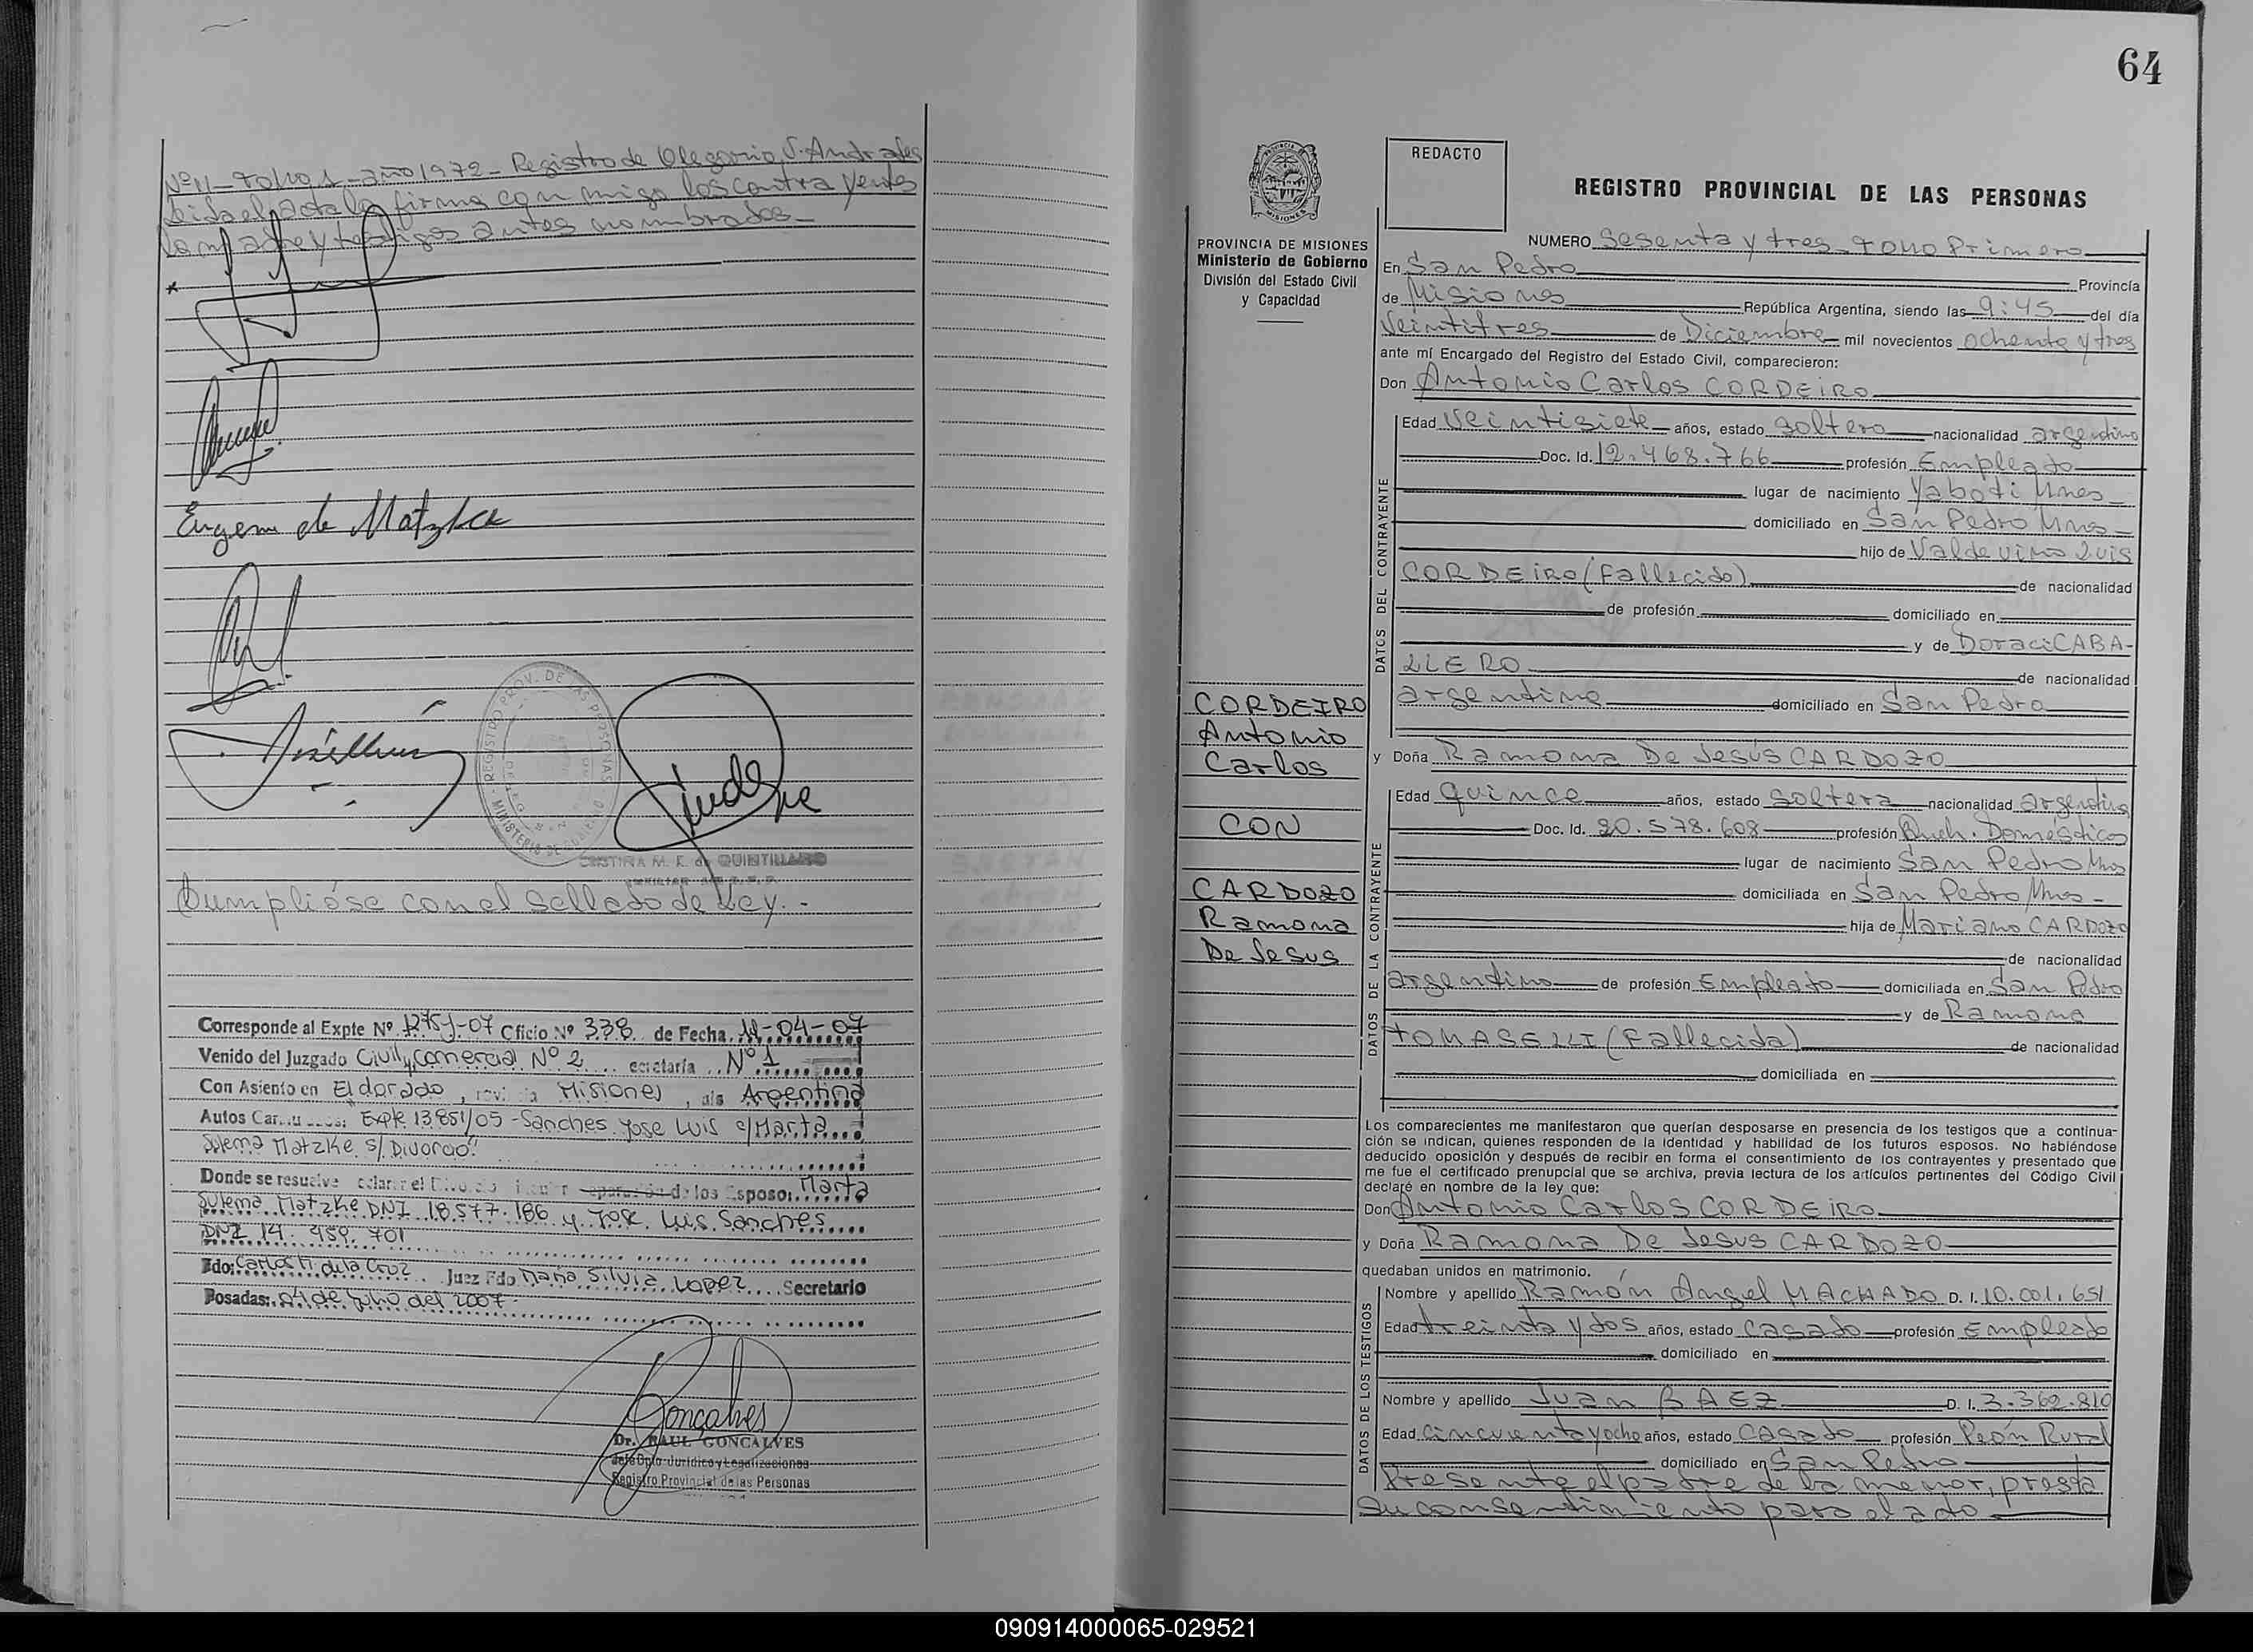 Nº 11 - Tomo 1 - año 1972 - Registro de Olegario V. Andrades
Leida el acta la firma con migo los contra yentes
la madre y testigos antes nombrados -
Eugem de Matzke
REGISTRO PROV. DE LAS PERSONAS
MINISTERIO DE GOBIERNO
CRISTINA M. K. de QUINTILLANO
Cumplióse con el Sellado de Ley. -
Corresponde al Expte Nº 12751-07 Oficio Nº 338 de Fecha 11-04-07
Venido del Juzgado Civil y Comercial Nº 2 ecretaría Nº 1
Con Asiento en Eldorado, Misiones, ais Argentina
Autos Expte 13851/05 - Sanches Jose Luis c/Marta
Sulema Matzke s/Divorcio"
Donde se resuelve de los Esposos: Marta
Sulema Matzke DNI 18.577.186 y Jose Luis Sanches
DNI 14.959.701
Fdo: Carlos H. de la Cruz Juez Fdo Maria Silvia Lopez Secretario
Posadas: 04 de Julio del 2007
Goncalves
Dr. RAUL GONCALVES
Jefe Dpto. Jurídico y Legalizaciones
Registro Provincial de las Personas
64
PROVINCIA DE MISIONES
Ministerio de Gobierno
División del Estado Civil
y Capacidad
CORDEIRO
Antonio
Carlos
CON
CARDOZO
Ramona
De Jesus
REDACTO
REGISTRO PROVINCIAL DE LAS PERSONAS
NUMERO Sesenta y tres - Tomo Primero
En San Pedro Provincia
de Misiones República Argentina, siendo las 9:45 del día
Veintitres de Diciembre mil novecientos ochenta y tres
ante mí Encargado del Registro del Estado Civil, comparecieron:
Don Antonio Carlos CORDEIRO
DATOS DEL CONTRAYENTE
Edad Veintisiete años, estado soltero nacionalidad argentino
Doc. Id. 12.468.766 profesión Empleado
lugar de nacimiento Yaboti Mnes
domiciliado en San Pedro Mnes
hijo de Valdevino Luis
CORDEIRO (Fallecido) de nacionalidad
de profesión domiciliado en
y de Doraci CABA-
LLERO de nacionalidad
argentina domiciliado en San Pedro
y Doña Ramona De Jesús CARDOZO
DATOS DE LA CONTRAYENTE
Edad quince años, estado soltera nacionalidad argentina
Doc. Id. 20.578.608 profesión Queh. Domésticos
lugar de nacimiento San Pedro Mnes
domiciliada en San Pedro Mnes -
hija de Mariano CARDOZO
de nacionalidad
argentino de profesión Empleado domiciliada en San Pedro
y de Ramona
TOMASELLI (Fallecida) de nacionalidad
domiciliada en
Los comparecientes me manifestaron que querían desposarse en presencia de los testigos que a continua-
ción se indican, quienes responden de la identidad y habilidad de los futuros esposos. No habiéndose
deducido oposición y después de recibir en forma el consentimiento de los contrayentes y presentado que
me fue el certificado prenupcial que se archiva, previa lectura de los artículos pertinentes del Código Civil
declaré en nombre de la ley que:
Don Antonio Carlos CORDEIRO
y Doña Ramona De Jesus CARDOZO
quedaban unidos en matrimonio.
DATOS DE LOS TESTIGOS
Nombre y apellido Ramón Angel MACHADO D. I. 10.001.651
Edad treinta y dos años, estado casado profesión Empleado
domiciliado en
Nombre y apellido Juan BAEZ D. I. 3.362.810
Edad Cincuenta y ocho años, estado casado profesión Peón Rural
domiciliado en San Pedro
Presente el padre de la menor, presta
su consentimiento para el acto
090914000065-029521